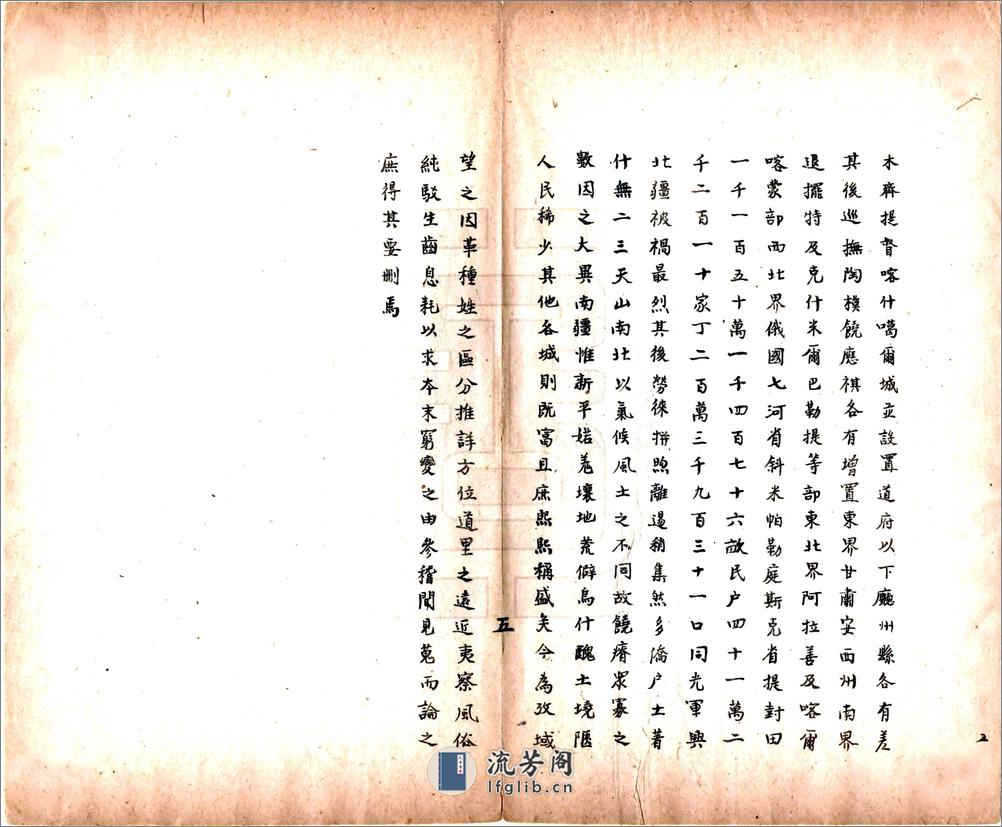 木齊提督喀什噶爾城並設置道府以下廳州縣各有差
其後巡撫陶模饒應祺各有增置東界甘肅安西州南界
退擺特及克什米爾巴勒提等部東北界阿拉善及喀爾
喀蒙部西北界俄國七河省斜米帕勒庭斯克省提封田
一千一百五十萬一千四百七十六畝民户四十一萬二
千二百一十家丁二百萬三千九百三十一口同光軍興
北疆被禍最烈其後勞徠拊喣離逷稍集然多僑户土著
什無二三天山南北以氣候風土之不同故饒瘠眾寡之
數因之大異南疆惟新平婼羌壤地荒僻烏什醜土境陿
人民稀少其他各城則既富且庶熙熙稱盛矣今為攷域
望之因革種姓之區分推詳方位道里之遠近夷察風俗
純駁生齒息耗以求本末窮變之由參稽聞見蒐而論之
庶得其要刪焉
五
流芳阁
lfglib.cn